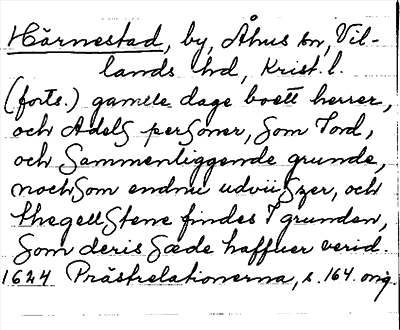 Härnestad, by, Åhus sn, Vil-
lands hd, Krist. l.
(forts.) gamlle dage boett herrer,
och Adels personer, som Tord,
och Sammenliggende grunde,
nochsom endnu udviiszer, och
thegellstene findes I grunden,
som deris Sæde haffuer verid.
1624 Prästrelationerna, s. 164. orig.